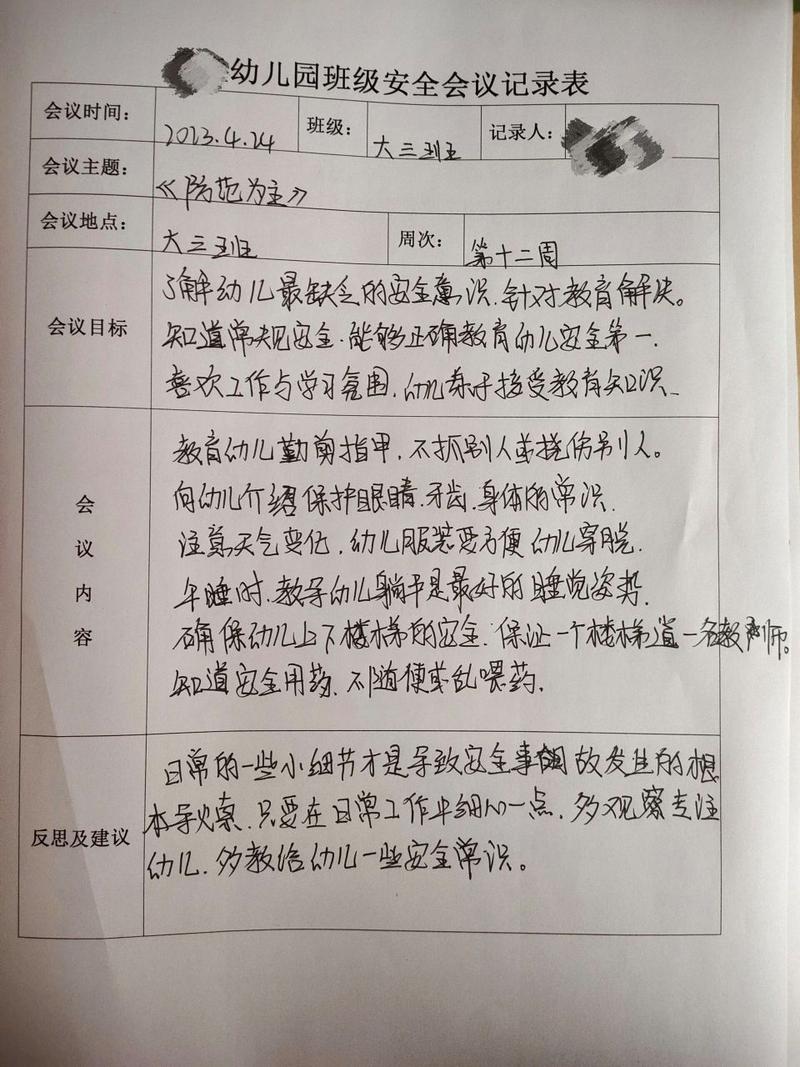 幼儿园班级安全会议记录表
会议时间： 2023.4.24 班级： 大三班 记录人：
会议主题： 《防范为主》
会议地点： 大三班 周次： 第十二周
会议目标
了解幼儿最缺乏的安全意识.针对教育解决。
知道常规安全.能够正确教育幼儿安全第一.
喜欢工作与学习氛围.幼儿乐于接受教育知识.
会议内容
教育幼儿勤剪指甲.不抓别人或挠伤别人。
向幼儿介绍保护眼睛.牙齿.身体的常识.
注意天气变化.幼儿服装要方便幼儿穿脱.
午睡时.教导幼儿躺平是最好的睡觉姿势.
确保幼儿上下楼梯的安全.保证一个楼梯道一名教师。
知道安全用药.不随便或乱喂药.
反思及建议
日常的一些小细节才是导致安全事故发生的根
本导火索.只要在日常工作中细心一点.多观察专注
幼儿.多教给幼儿一些安全常识。